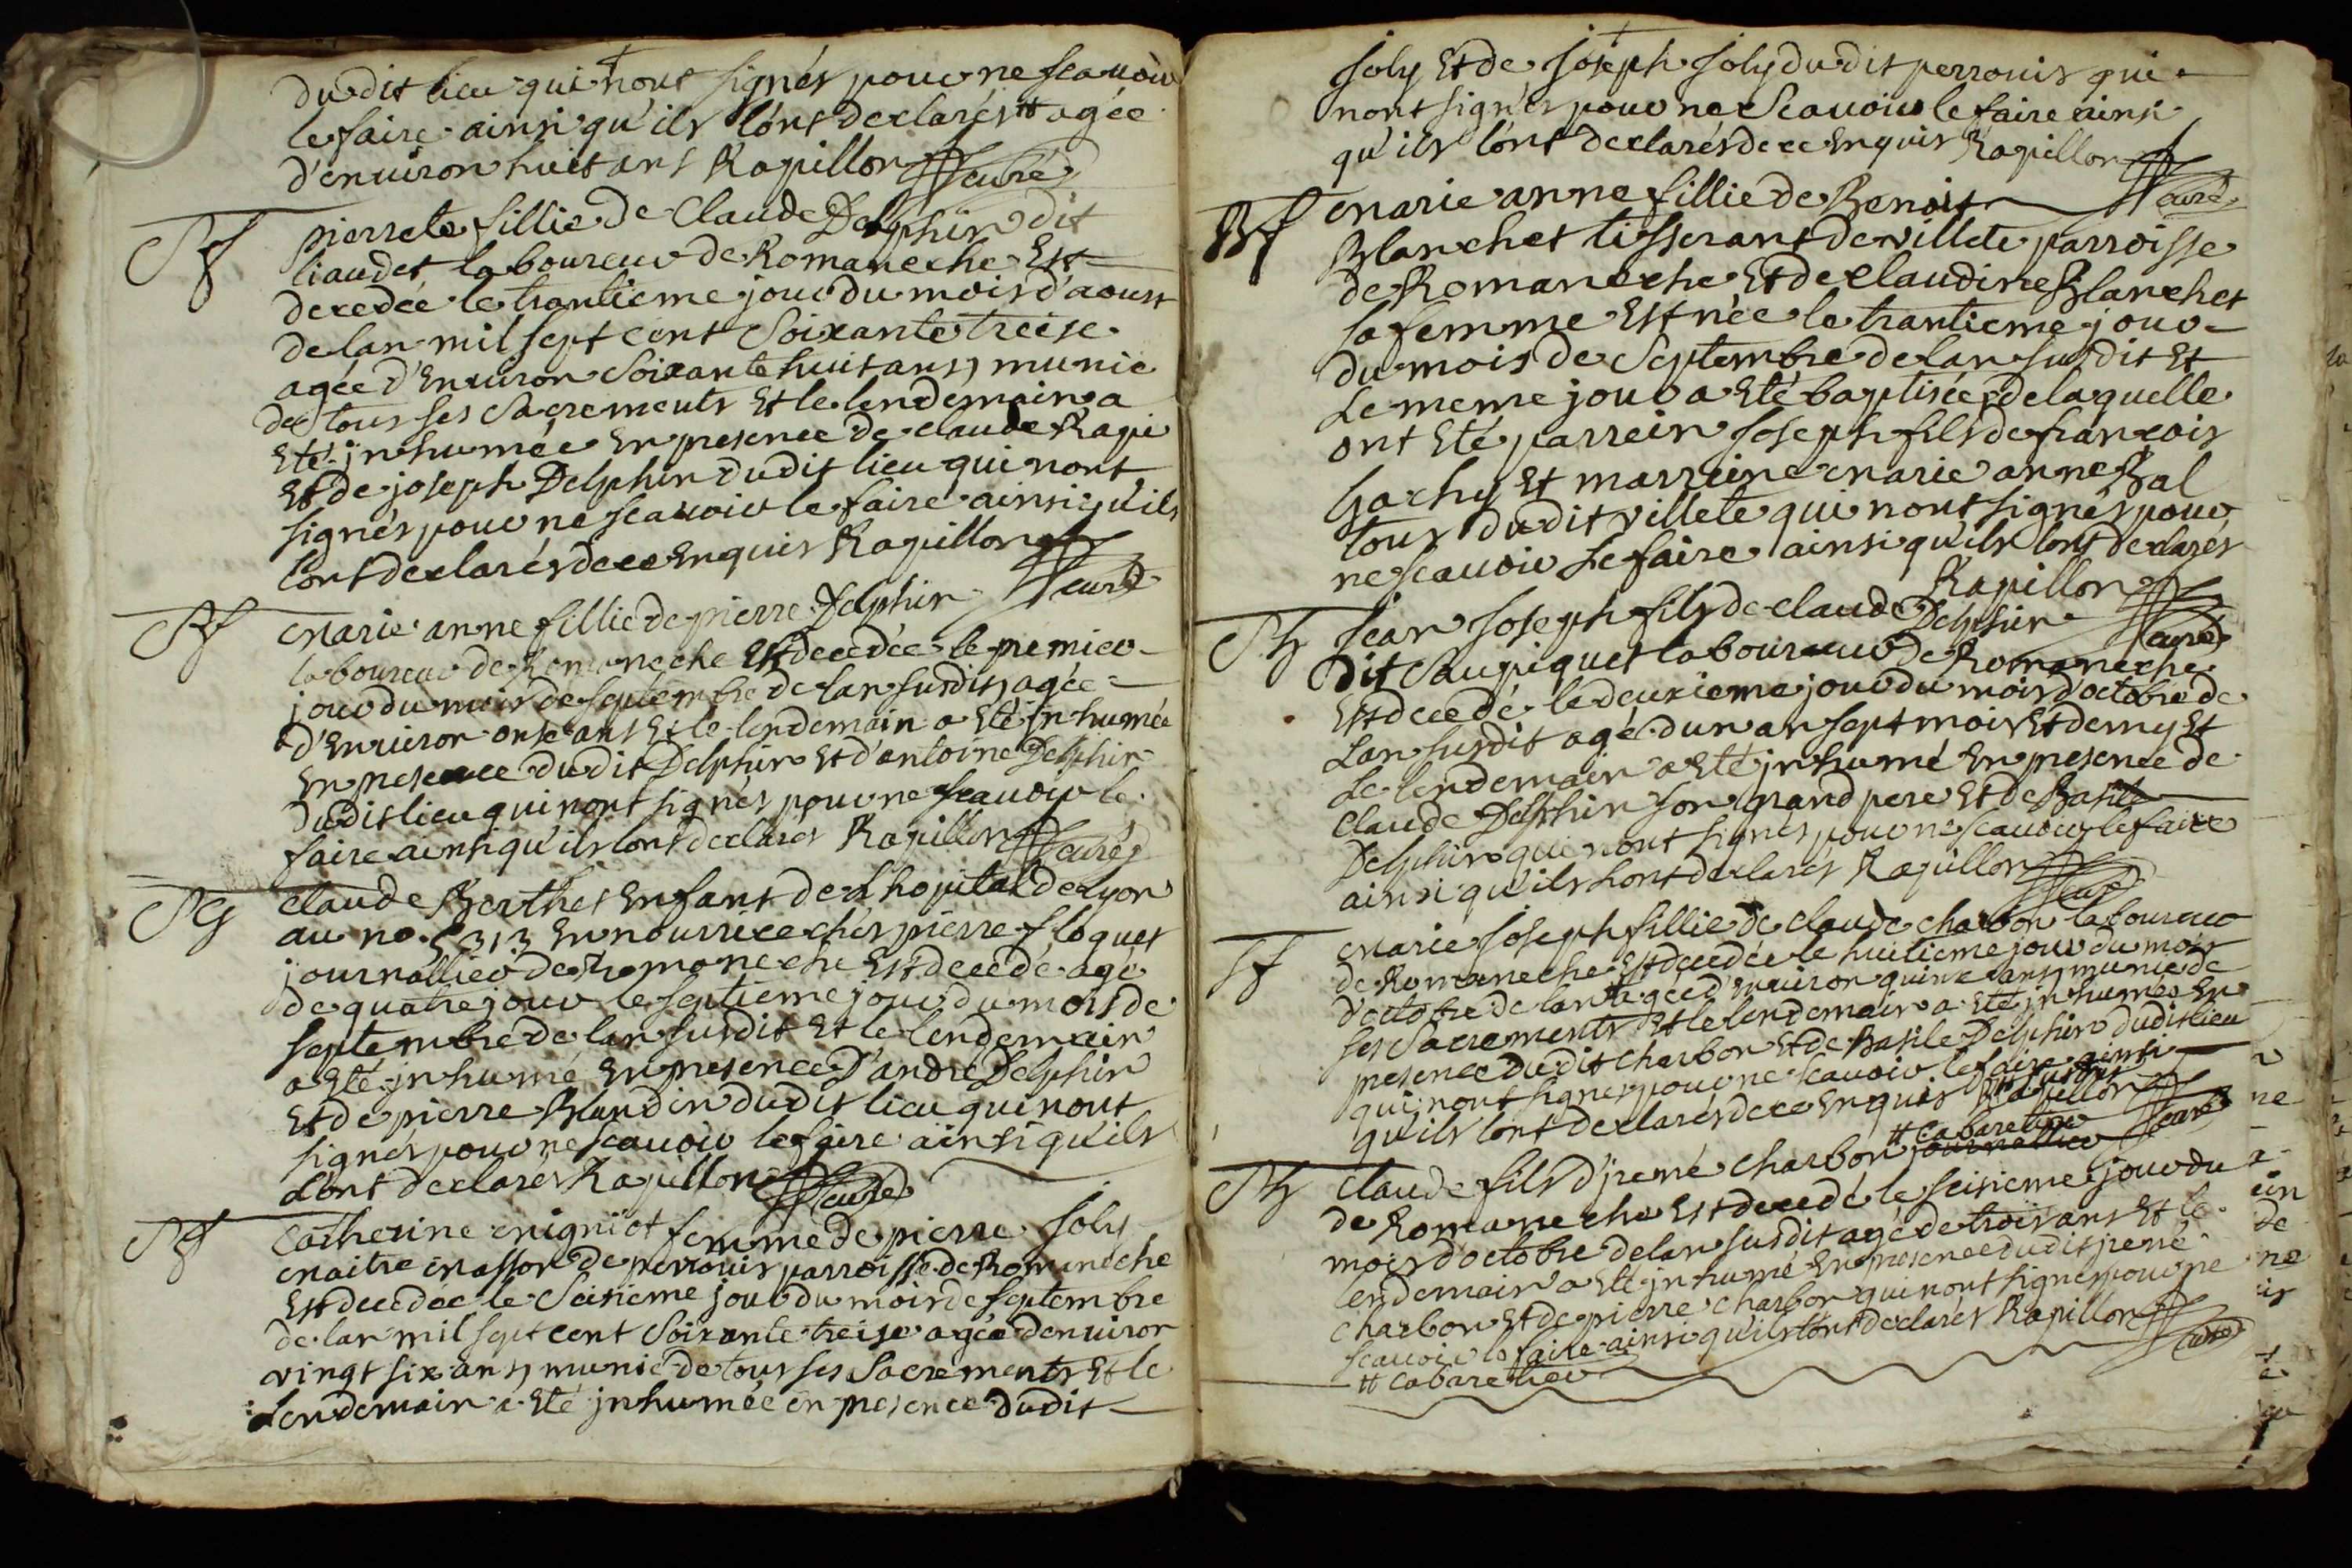 dudit lieu qui nont signés pour ne scavoir
le faire ainsi qu'ils lont declarés # agée
d'environ huit ans Rapillon curé
Sf pierrete fillie de Claude Delphin dit
liaudet laboureur de Romaneche Est
decedée le trantieme jour du mois d'aoust
de lan mil sept cent Soixante treise
agée d'Environ Soixante huit ans, munie
de tous ses Sacrements Et le lendemain a
Eté jnhumée En presence de claude Rapi
Et de joseph Delphin dudit lieu qui nont
signés pour ne scavoir le faire ainsi qu'ils
lont declarés de ce Enquis Rapillon
curé
Sf marie anne fillie de pierre Delphin
laboureur de Romaneche Est decedée le premier
jour du mois de septembre de lan susdit, agée
d'Environ onse ans Et le lendemain a Eté jnhumée
En presence dudit Delphin Et d'antoine Delphin
dudit lieu qui nont signés pour ne scavoir le
faire ainsi qu'ils lont declarés Rapillon curé
Sg claude Berthet Enfant de L'hopital de Lyon
au no. 5313 En nourrice chés pierre floquet
journallier de Romaneche Est decedé agé
de quatre jour le septieme jour du mois de
septembre de lan susdit Et le lendemain
a Eté jnhumé En presence D'andre Delphin
Et de pierre Blandin dudit lieu qui nont
signés pour ne scavoir le faire ainsi qu'ils
Lont declarés Rapillon curé
Sf Catherine migniot femme de pierre Joly
maitre masson de perrouis parroisse de Romaneche
Est decedée le Seisieme jour du mois de septembre
de lan mil sept cent Soixante treise agée denviron
vingt six ans, munie de tous ses Sacrements Et le
Lendemain a Eté jnhumée en presence dudit
Joly Et de Joseph Joly dudit perrouis qui
nont signés pour ne Scavoir le faire ainsi
qu'ils lont declarés de ce Enquis Rapillon
curé
Bf marie anne fillie de Benoit
Blanchet tisserant de villete parroisse
de Romaneche Et de Claudine Blanchet
sa femme Est née le trantieme jour
du mois de Septembre de lan susdit Et
Le meme jour a Eté baptisée, de laquelle
ont Eté parrein Joseph fils de francois
Gachy Et marreine marie anne Bal
tous dudit villete qui nont signés pour
ne scavoir Le faire ainsi qu'ils lont declarés
Rapillon
curé
Sg Jean Joseph fils de claude Delphin
dit Saupiquet laboureur de Romaneche
Est decedé le deuxieme jour du mois d'octobre de
Lan susdit agé d'un an sept mois Et demy Et
Le lendemain a Eté jnhumé En presence de
Claude Delphin son grand pere Et de Basile
Delphin qui nont signés pour ne scavoir le faire
ainsi qu'ils Lont declarés Rapillon
curé
Sf marie Joseph fillie de claude charbon laboureur
de Romaneche Est decedée le huitieme jour du mois
d'octobre de lan # agée d'environ quinse ans, munie de
ses Sacrements Et le lendemain a Eté jnhumée En
presence dudit charbon Et de Basile Delphin dudit lieu
qui nont signés pour ne scavoir le faire ainsi
# susdit
qu'ils lont declarés de ce Enquis Rapillon
curé
# cabaretier
Sg Claude fils d'jrené charbon journallier
de Romaneche Est decedé le seisieme jour du
mois d'octobre de lan susdit agé de trois ans Et le
lendemain a Eté jnhumé En presence dudit jrené
charbon Et de pierre charbon qui nont signés pour ne
scavoir le faire ainsi qu'ils lont declarés Rapillon
curé
# cabaretier